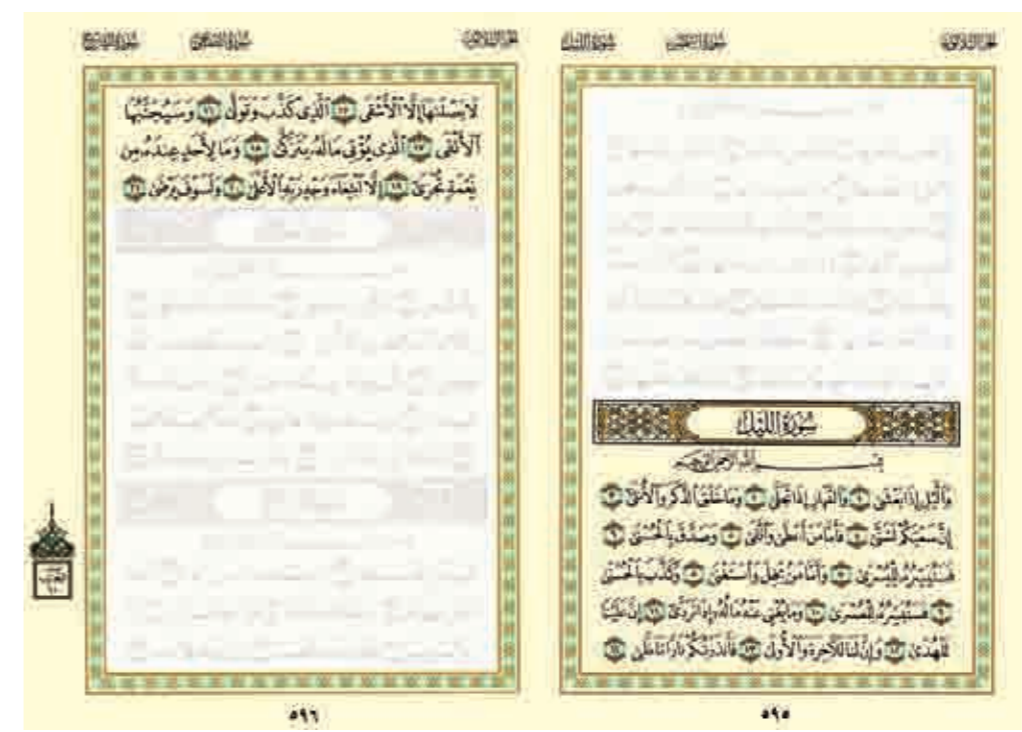 الجزء الثلاثون
سورة الشمس
سورة الليل
سورة الليل
بسم الله الرحمن الرحيم
وَٱلَّيْلِ إِذَا يَغْشَىٰ ١ وَٱلنَّهَارِ إِذَا تَجَلَّىٰ ٢ وَمَا خَلَقَ ٱلذَّكَرَ وَٱلْأُنثَىٰ ٣
إِنَّ سَعْيَكُمْ لَشَتَّىٰ ٤ فَأَمَّا مَنْ أَعْطَىٰ وَٱتَّقَىٰ ٥ وَصَدَّقَ بِٱلْحُسْنَىٰ ٦
فَسَنُيَسِّرُهُۥ لِلْيُسْرَىٰ ٧ وَأَمَّا مَنۢ بَخِلَ وَٱسْتَغْنَىٰ ٨ وَكَذَّبَ بِٱلْحُسْنَىٰ
٩ فَسَنُيَسِّرُهُۥ لِلْعُسْرَىٰ ١٠ وَمَا يُغْنِى عَنْهُ مَالُهُۥٓ إِذَا تَرَدَّىٰٓ ١١ إِنَّ عَلَيْنَا
لَلْهُدَىٰ ١٢ وَإِنَّ لَنَا لَلْـَٔاخِرَةَ وَٱلْأُولَىٰ ١٣ فَأَنذَرْتُكُمْ نَارًا تَلَظَّىٰ ١٤
٥٩٥
الجزء الثلاثون
سورة الشرح
لَا يَصْلَىٰهَآ إِلَّا ٱلْأَشْقَى ١٥ ٱلَّذِى كَذَّبَ وَتَوَلَّىٰ ١٦ وَسَيُجَنَّبُهَا
ٱلْأَتْقَى ١٧ ٱلَّذِى يُؤْتِى مَالَهُۥ يَتَزَكَّىٰ ١٨ وَمَا لِأَحَدٍ عِندَهُۥ مِن
نِّعْمَةٍ تُجْزَىٰٓ ١٩ إِلَّا ٱبْتِغَآءَ وَجْهِ رَبِّهِ ٱلْأَعْلَىٰ ٢٠ وَلَسَوْفَ يَرْضَىٰ ٢١
٥٩٦